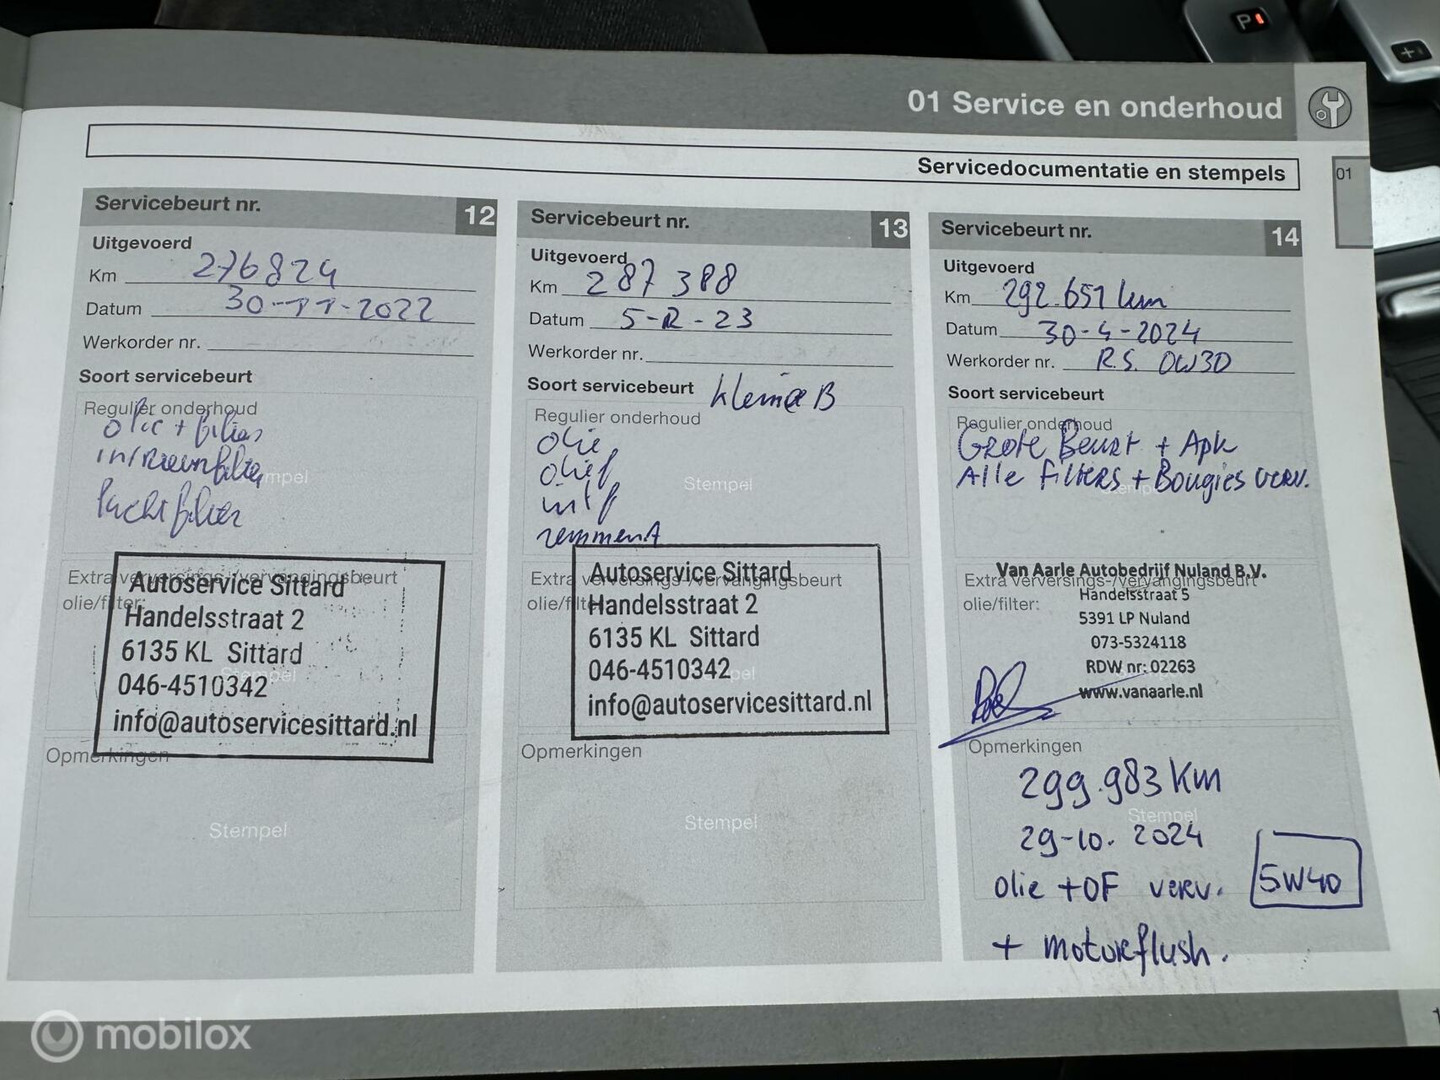 P
+
01 Service en onderhoud
Servicedocumentatie en stempels
01
Servicebeurt nr. 12
Uitgevoerd
Km 276824
Datum 30-11-2022
Werkorder nr.
Soort servicebeurt
Regulier onderhoud
olie + filter
interieurfilter
Stempel
luchtfilter
Extra verversings-/vervangingsbeurt
olie/filter:
Autoservice Sittard
Handelsstraat 2
6135 KL Sittard
046-4510342
info@autoservicesittard.nl
Opmerkingen
Stempel
Servicebeurt nr. 13
Uitgevoerd
Km 287 388
Datum 5-12-23
Werkorder nr.
Soort servicebeurt kleine B
Regulier onderhoud
olie
olief
Stempel
intf
remmen
Extra verversings-/vervangingsbeurt
olie/filter:
Autoservice Sittard
Handelsstraat 2
6135 KL Sittard
046-4510342
info@autoservicesittard.nl
Opmerkingen
Stempel
Servicebeurt nr. 14
Uitgevoerd
Km 292.651 km
Datum 30-4-2024
Werkorder nr. R.S. 0W30
Soort servicebeurt
Regulier onderhoud
Grote Beurt + Apk
Alle filters + Bougies verv.
Stempel
Extra verversings-/vervangingsbeurt
olie/filter:
Van Aarle Autobedrijf Nuland B.V.
Handelsstraat 5
5391 LP Nuland
073-5324118
RDW nr: 02263
www.vanaarle.nl
Opmerkingen
299.983 Km
Stempel
29-10.2024
olie + OF verv. 5W40
+ motorflush.
mobilox